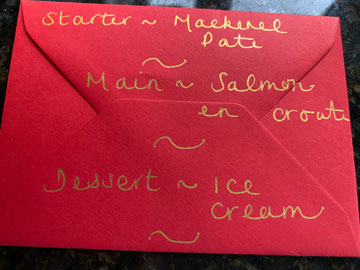 Starter ~ Mackerel
Pate
~
Main ~ Salmon
en croute
~
Dessert ~ Ice
Cream
~